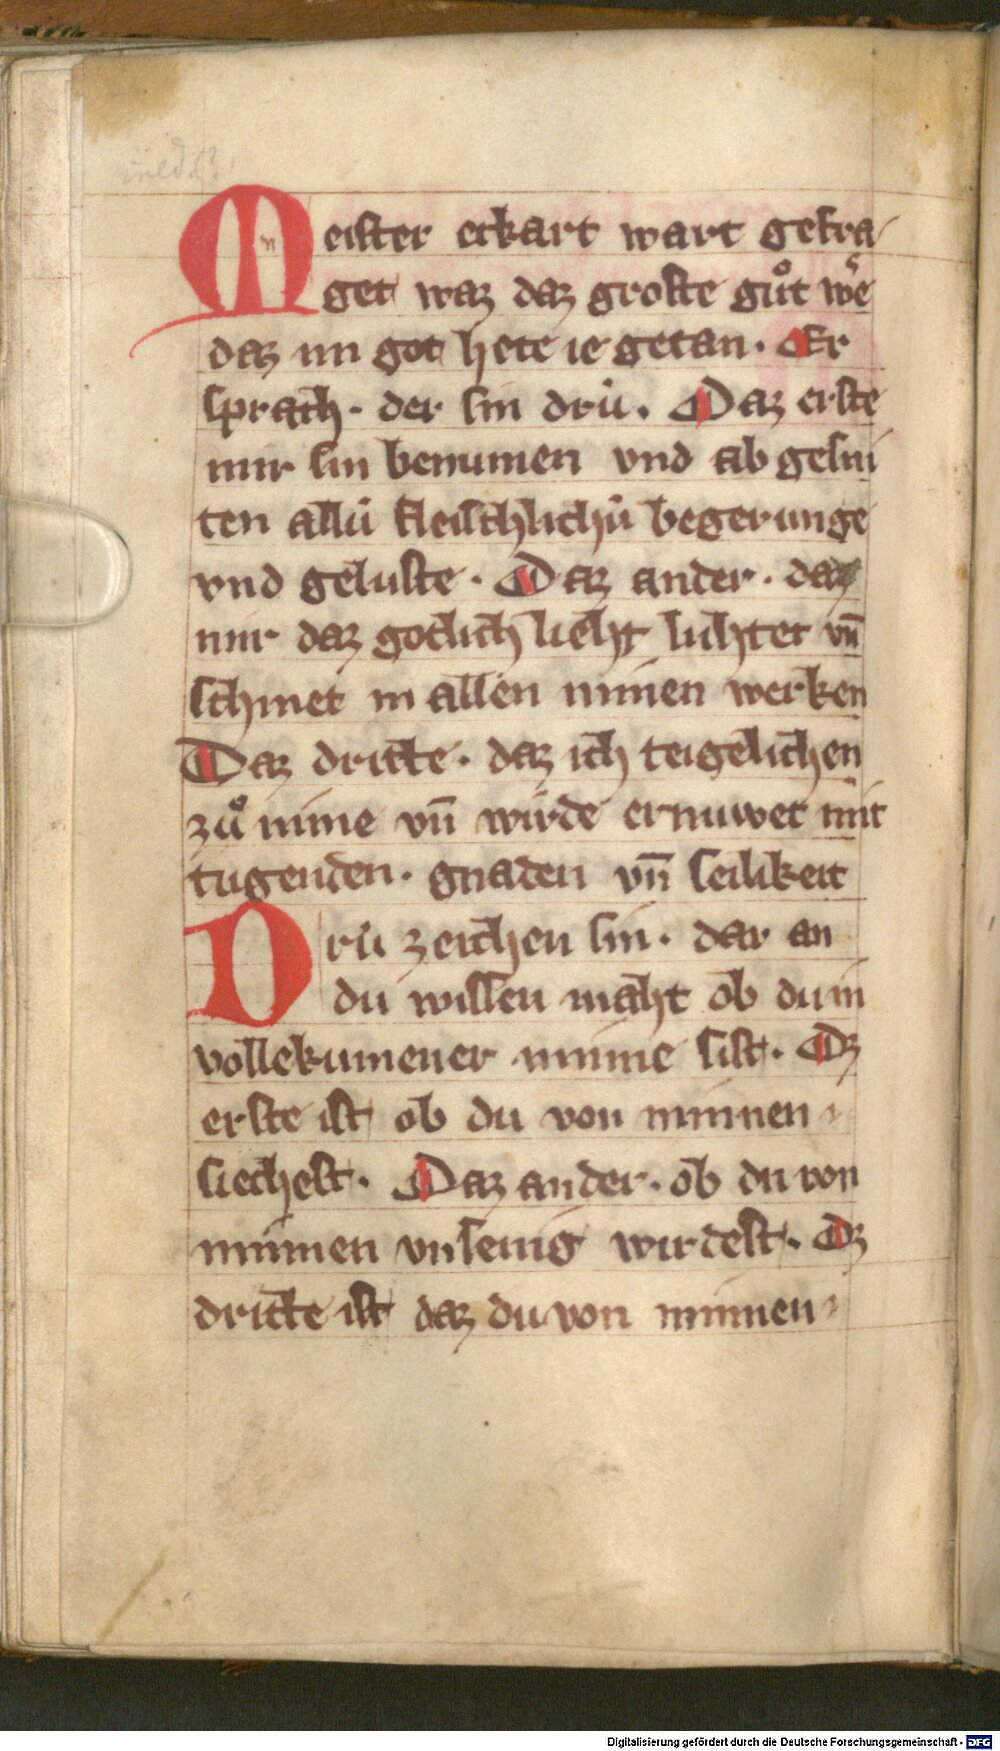 Meister eckart wart gefra-
get waz daz groste guͦt we͛
daz im got hete ie getan. Er
sprach. der sin drü. Daz erste
mir sin benumen vnd ab gesni
ten allü fleischlichü begerunge
vnd geluste. Daz ander. daz
mir daz gotlich lieht luhtet vn̄
schinet in allen minen werken
Daz dritte. daz ich tegelichen
zuͦ nime vn̄ wirde ernuwet mit
tugenden. gnaden vn̄ selikeit
Drü zeichen sin. dar an
du wissen maht ob du in
vollekumener minne sist. Dz
erste ist ob du von minnen
siechest. Daz ander. ob du von
minnen vnsenig wirdest. Dz
dritte ist daz du von minnen
Digitalisierung gefördert durch die Deutsche Forschungsgemeinschaft - DFG